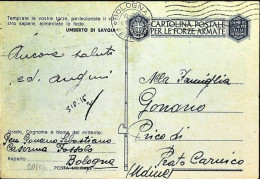 Temprate le vostre forze, perfezionate il vostro sapere, alimentate la fede.
UMBERTO DI SAVOIA
Ancora saluti
ed auguri
Grado, Cognome e Nome del mittente:
Gonano Sebastiano
Caserma
Reparto
Bologna
POSTA MILITARE
BOLOGNA
CARTOLINA POSTALE
PER LE FORZE ARMATE
Alla Famiglia
Gonano
Prico di
Prato Carnico
(Udine)